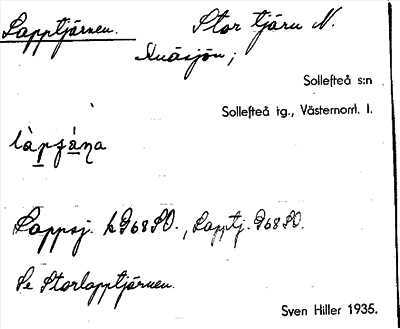 Lapptjärnen. Stor tjärn N.
Anåsjön;
Sollefteå s:n
Sollefteå tg., Västernorrl. l.
Lappsj. G68SO., Lapptj. G68SO.
Se Storlapptjärnen.
Sven Hiller 1935.